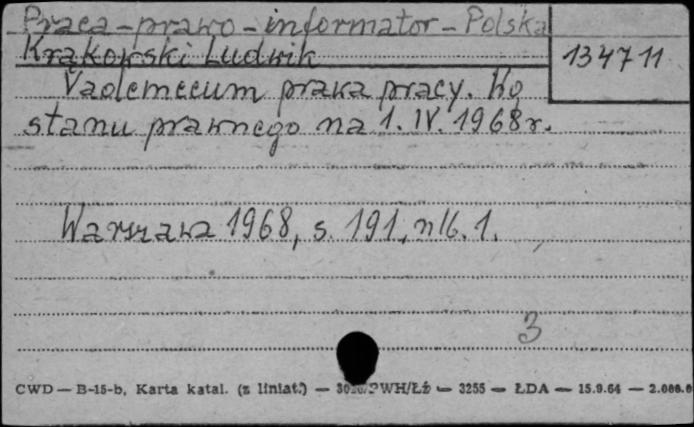 Praca-prawo-informator-Polska
134711
Krakowski Ludwik
Vademecum prawa pracy.
stanu prawnego na 1. IV. 1968r.
Warszawa 1968, s. 191, nlb. 1.
3
CWD — B-15-b, Karta katal. (z liniat.) — PWH/Łź — 3255 — ŁDA — 15.9.64 —